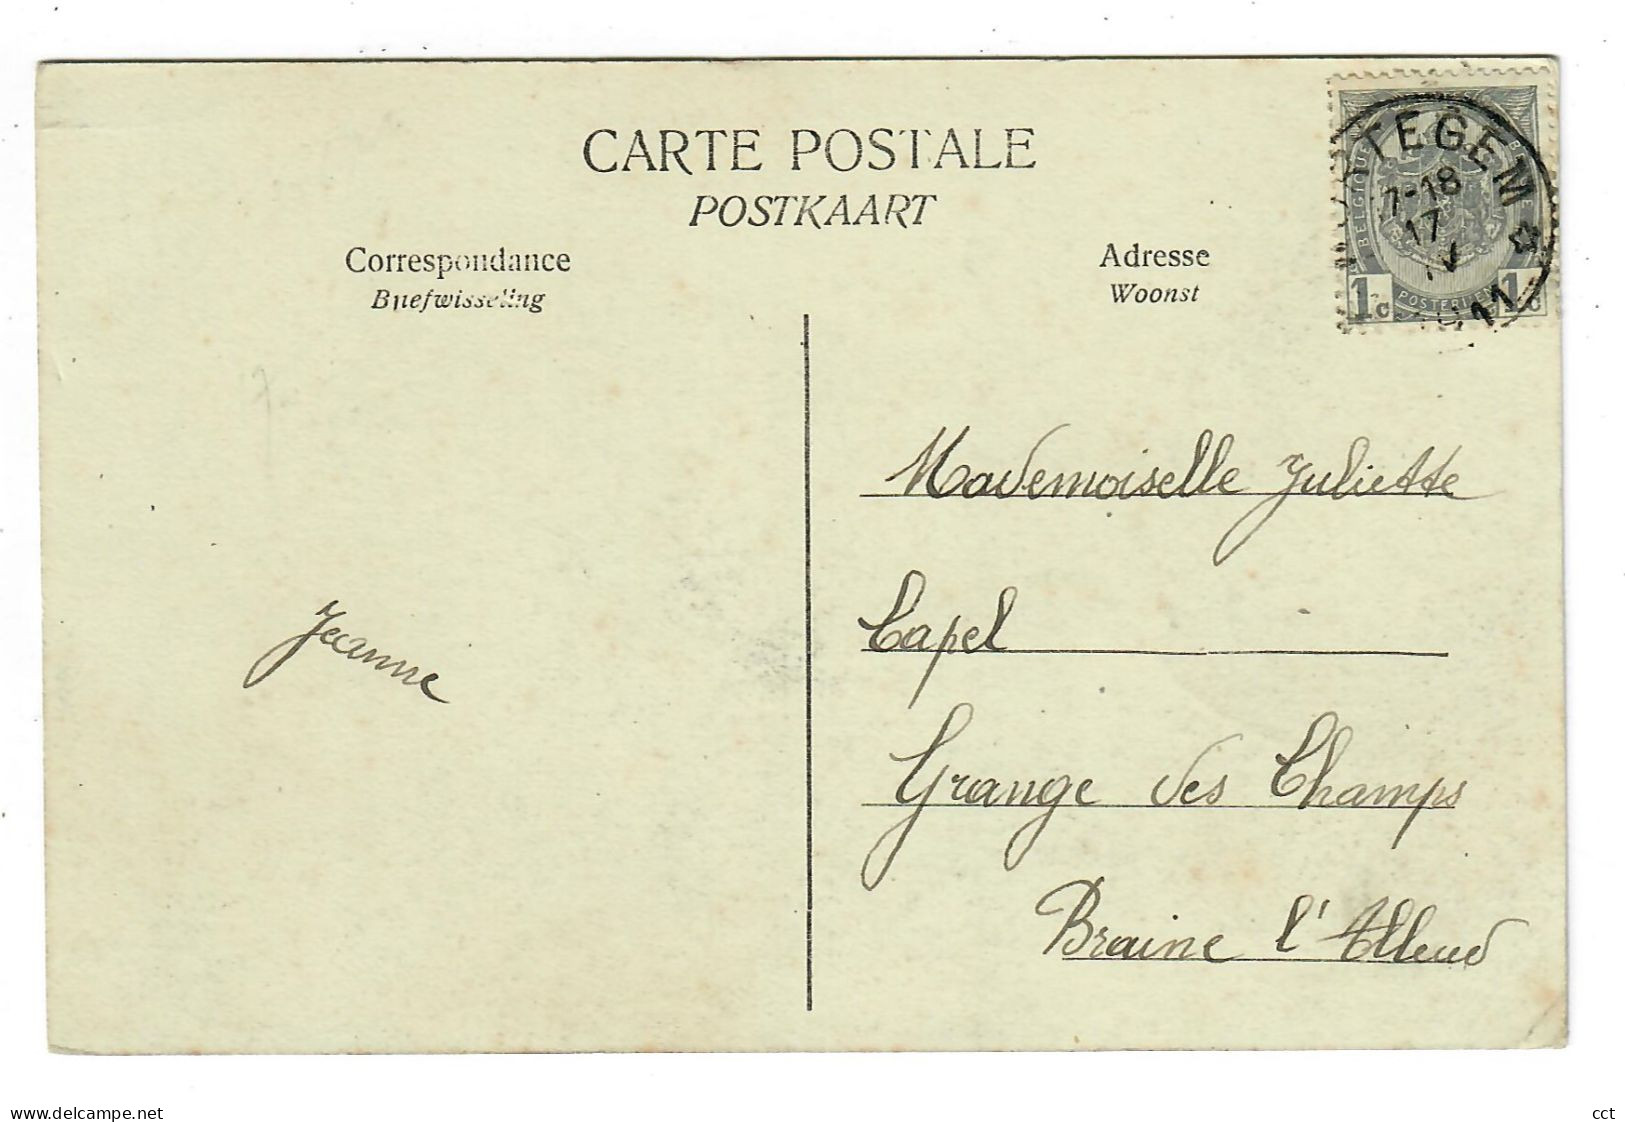 CARTE POSTALE
POSTKAART
Correspondance
Briefwisseling
Adresse
Woonst
ATEGEM
7-18
17
IV
11
BELGIQUE
POSTERIJEN
1c 1c
Mademoiselle Juliette
Capel
Grange des Champs
Braine l'Alleud
Jeanne
www.delcampe.net
cct